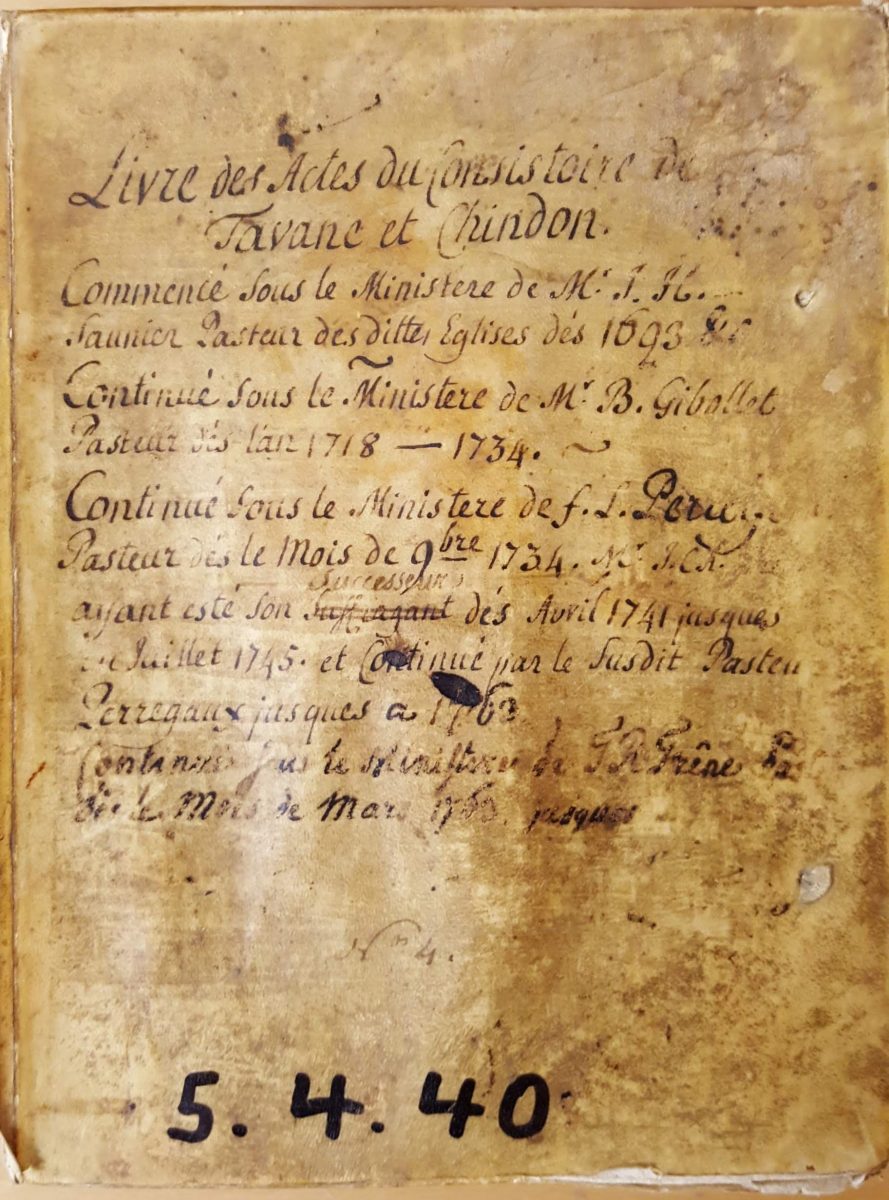 Livre des Actes du Consistoire de
Tavane et Chindon.
Commencé sous le Ministere de Mr. J. H.
Saunier Pasteur desdittes Eglises dés 1693
Continué sous le Ministere de Mr B. Gibollet
Pasteur dés l'an 1718 — 1734. ~
Continué sous le Ministere de f. L.
Pasteur dés le Mois de 9bre 1734. Mr J. Ch.
Successeur
ayant esté son Suffragant dés Avril 1741 jusques
Juillet 1745. et Continué par le Susdit Pasteu
Perregaux jusques a 1763
Continué sous le Ministere de T R Frêne
dés le Mois de Mars 1763. jusques
No 4.
5.4.40